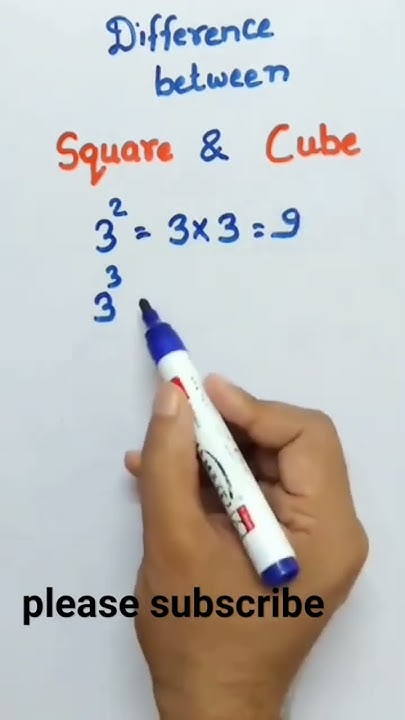 Difference
between
Square & Cube
3² = 3×3 = 9
3³
please subscribe